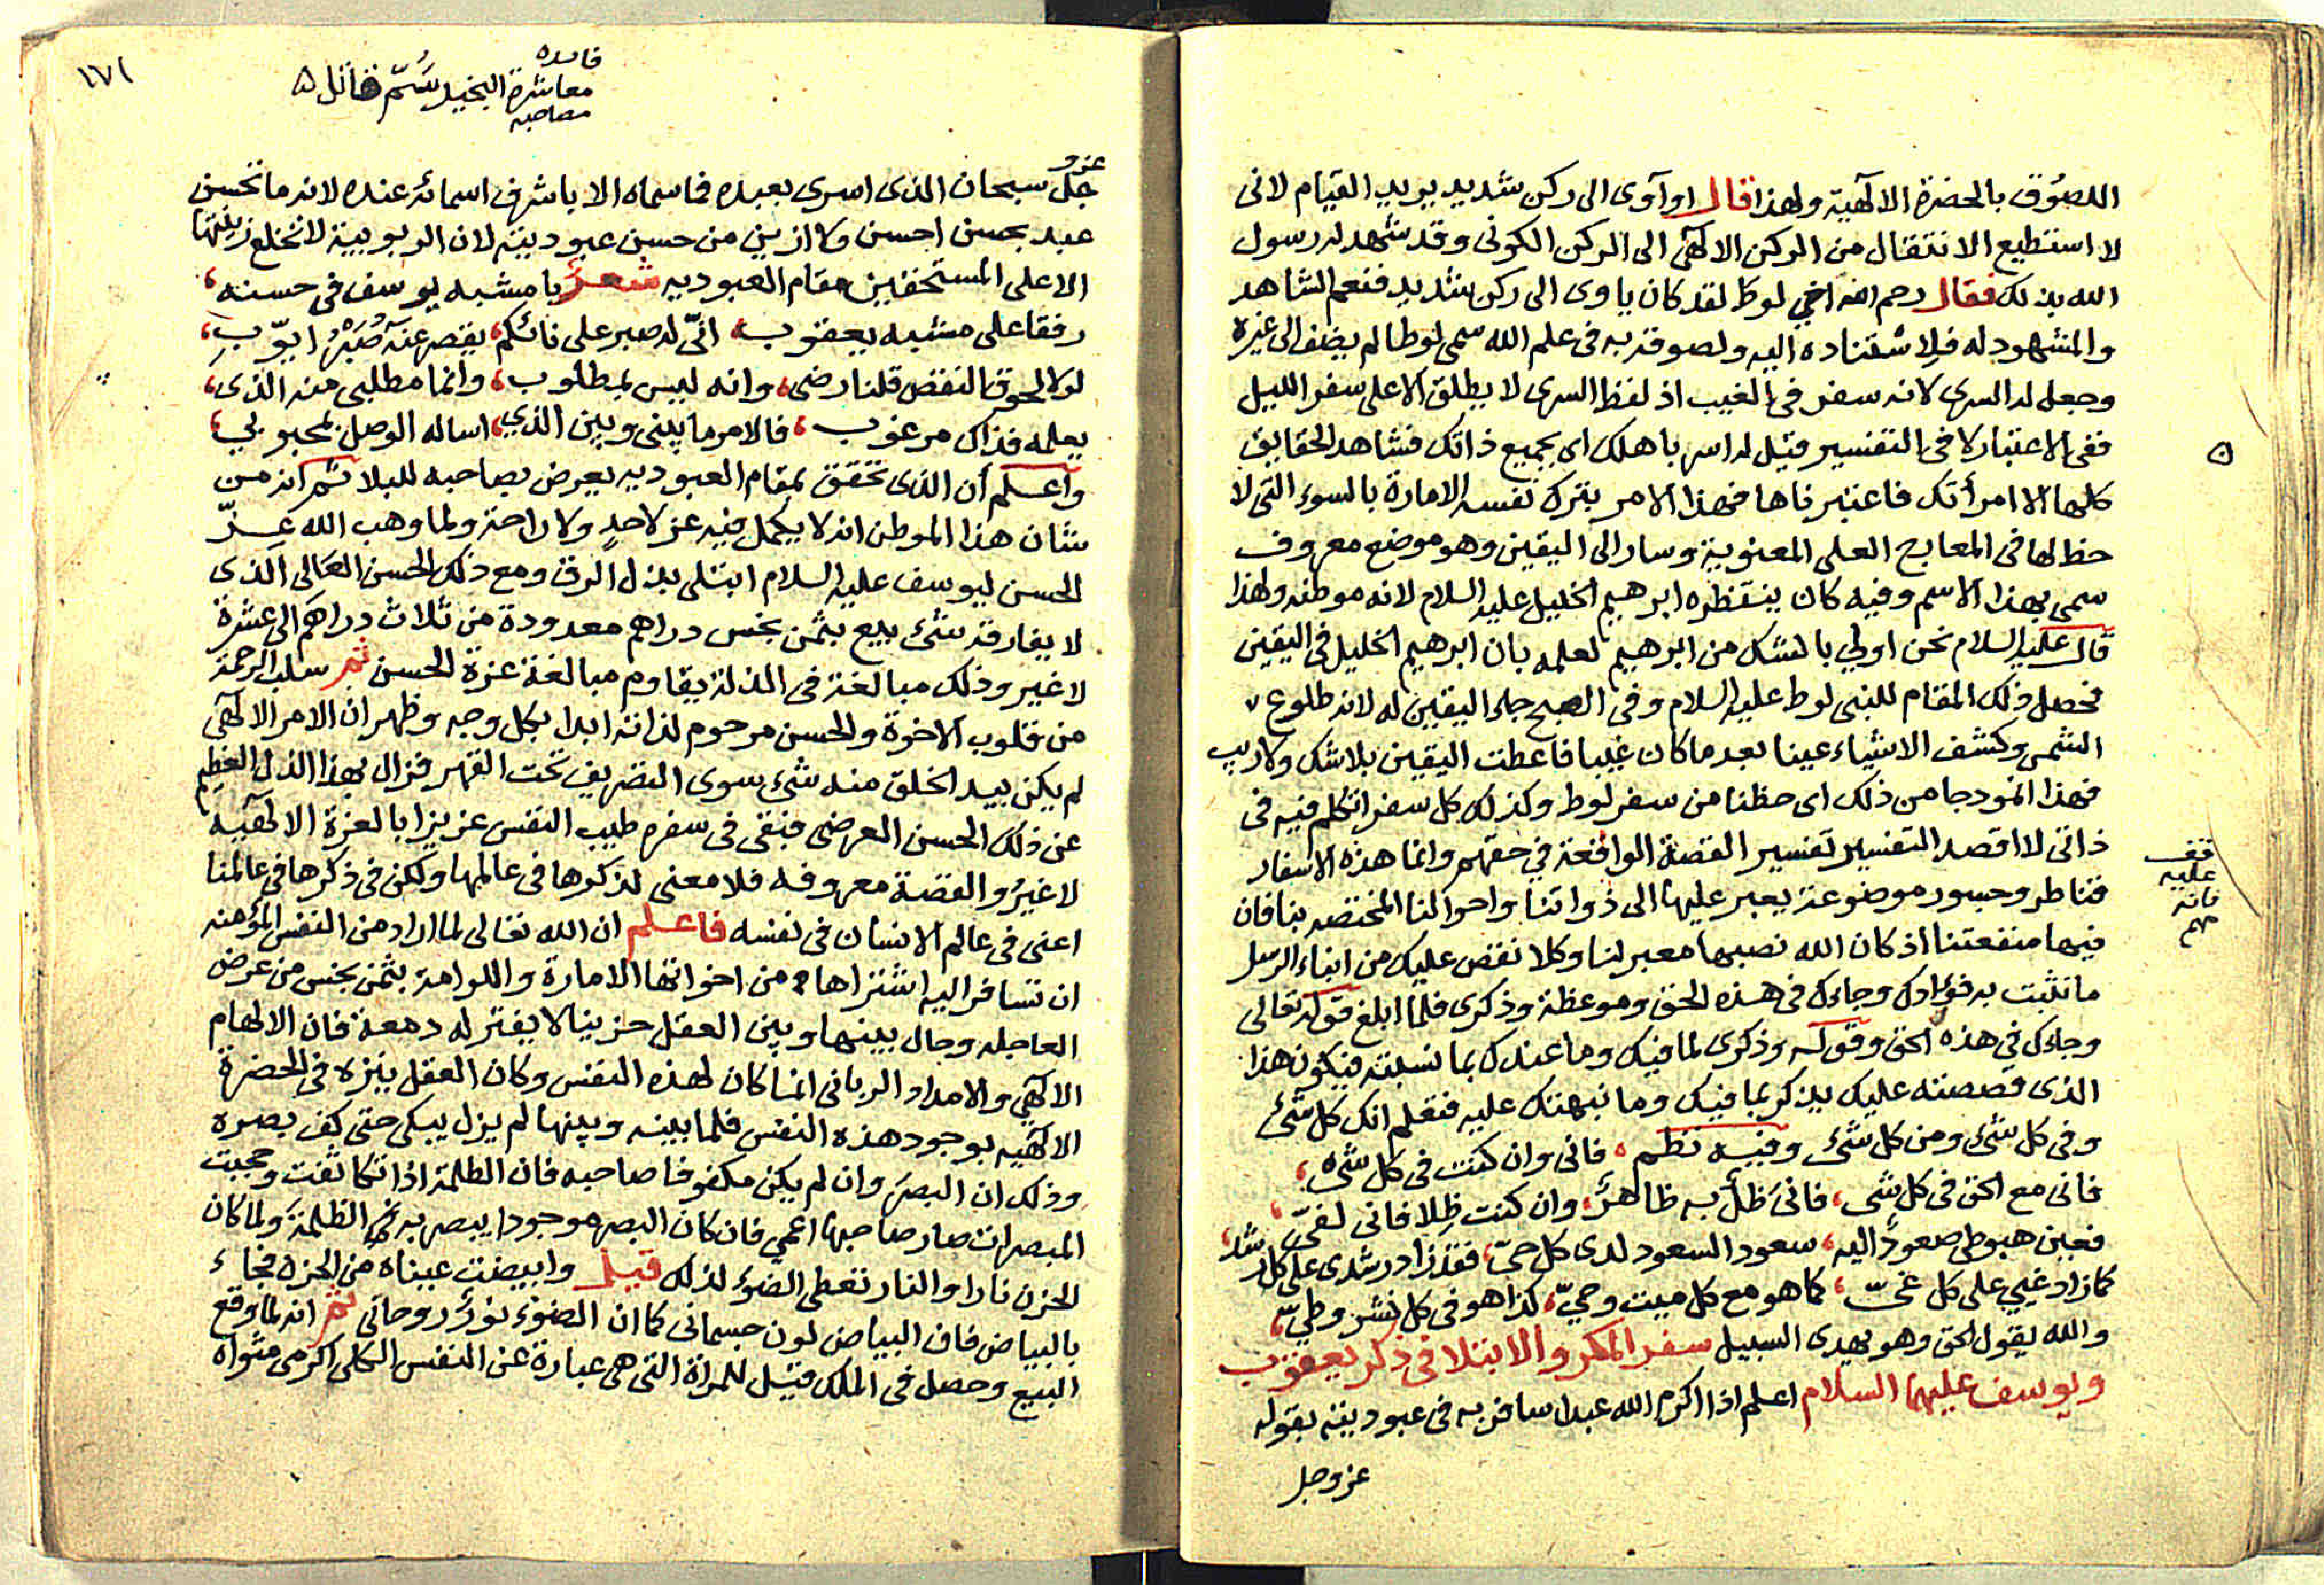 اللصوق بالحضرة الالهية ولهذا قال او آوى الى ركن شديد يريد القيام لانى
لا استطيع الانتقال من الركن الالهى الى الركن الكونى وقد شهد له رسول
الله بذلك فقال رحم الله اخي لوطا لقد كان ياوى الى ركن شديد فنعم الشاهد
والمشهود له فلاستناده اليه ولصوقه به فى علم الله سمى لوطا لم يضف الى غيره
وجعل له السرى لانه سفر فى الغيب اذ لفظ السرى لا يطلق الا على سفر الليل
ففى الاعتبار لا فى التفسير قيل له اسر باهلك اى بجميع ذاتك فشاهد الحقايق
كلها الا امرأتك فاعتبرناها فهذا الامر بترك نفسه الامارة بالسوء التى لا
حظ لها فى المعارج العلى المعنوية وسار الى اليقين وهو موضع معروف
سمى بهذا الاسم وفيه كان ينتظره ابرهيم الخليل عليه السلام لانه موطنه ولهذا
قال عليه السلام نحن اولي بالشك من ابرهيم لعلمه بان ابرهيم الخليل فى اليقين
فحصل ذلك المقام للنبى لوط عليه السلام وفى الصبح جاء اليقين له لانه طلوع
الشمس وكشف الاشياء عينا بعد ما كان غيبا فاعطت اليقين بلا شك ولا ريب
فهذا انموذجا من ذلك اى حظنا من سفر لوط وكذلك كل سفر اتكلم فيه فى
ذاتى لا اقصد التفسير تفسير القصة الواقعة في حقهم وانما هذه الاسفار
قناطر وجسور موضوعة يعبر عليها الى ذواتنا واحوالنا المختصه بنا فان
فيها منفعتنا اذ كان الله نصبها معبر لنا وكلا نقص عليك من انباء الرسل
ما نثبت به فؤادك وجاءك فى هذه الحق وموعظة وذكرى فلما ابلغ قوله تعالى
وجاءك في هذه الحق وقوله وذكرى لما فيك وما عندك بما نسيته فيكون هذا
الذى قصصته عليك يذكر بما فيك وما نبهتك عليه فتعلم انك كل شئ
وفى كل شئ ومن كل شئ وفيه نظم فانى وان كنت فى كل شى
فانى مع الحق فى كل شى فانى ظل به ظاهر وان كنت ظلا فانى لفى
فعين هبوطى صعود اليه سعود السعود لدى كل حى فقد زاد رشدى على كل رشد
كما زاد غيي على كل غى كما هو مع كل ميت وحي كذا هو فى كل نشر وطي
والله يقول الحق وهو يهدى السبيل سفر المكر والابتلا فى ذكر يعقوب
ويوسف عليهما السلام اعلم اذا اكرم الله عبدا سافر به فى عبوديته بقوله
عز وجل
قف
عليه
فانه
مهم
١٧١
فايده
معاشرة البخيل سم قاتل
مصاحبه
عز و
جل سبحان الذى اسرى بعبده فما سماه الا باشرف اسمائه عنده لانه ما تحسن
عبد بحسن احسن ولا ازين من حسن عبوديته لان الربوبية لا تخلع زينتها
الا على المستحقين مقام العبوديه شعر يا مشبه يوسف فى حسنه
رفقا على مشبه يعقوب انّى له صبر على نائكم يقصر عنه صبر ايوب
لولا لحوق النقص قلنا رضى وانه ليس بمطلوب وانما مطلبى منه الذى
يعلمه فذاك مرغوب فالامر ما بينى وبين الذي اساله الوصل بمحبوبي
واعلم أن الذى تحقق بمقام العبوديه يعرض بصاحبه للبلا ثم انه من
شان هذا الموطن انه لا يكمل فيه عز لاحد ولا راحة ولما وهب الله عز
الحسن ليوسف عليه السلام ابتلى بذل الرق ومع ذلك الحسن العالى الذى
لا يفارقه شئ بيع بثمن بخس دراهم معدودة من ثلاث دراهم الى عشرة
لا غير وذلك مبالغة فى المذلة يقاوم مبالغة عزة الحسن ثم سلب الرحمة
من قلوب الاخوة والحسن مرحوم لذاته ابدا بكل وجه وظهر ان الامر الالهى
لم يكن بيد الخلق منه شئ سوى التصريف تحت القهر فزال بهذا الذل العظيم
عن ذلك الحسن العرضى فبقى فى سفره طيب النفس عزيزا بالعزة الالهيه
لا غير والقصة معروفه فلا معنى لذكرها فى عالمها ولكن فى ذكرها فى عالمنا
اعنى فى عالم الانسان فى نفسه فاعلم ان الله تعالى لما اراد من النفس المؤمنه
ان تسافر اليه اشتراها من اخوانها الامارة واللوامة بثمن بخس من عرض
العاجله وحال بينها وبين العقل حزينا لا يفتر له دمعة فان الالهام
الالهي والامداد الربانى انما كان لهذه النفس وكان العقل ينزه فى الحضرة
الالهيه بوجود هذه النفس فلما بينه وبينها لم يزل يبكى حتى كف بصره
وذلك ان البصر وان لم يكن مكفوفا صاحبه فان الظلمة اذا تكاثفت وحجبت
المبصرات صار صاحبها اعمى فان كان البصر موجودا يبصر به الظلمة ولما كان
الحزن نارا والنار تعطى الضوء لذلك قيل وابيضت عيناه من الحزن فجاء
بالبياض فان البياض لون جسمانى كما ان الضوء نور روحانى ثم انه لما وقع
البيع وحصل فى الملك قيل للمراة التى هى عبارة عن النفس الكلى اكرمى مثواه